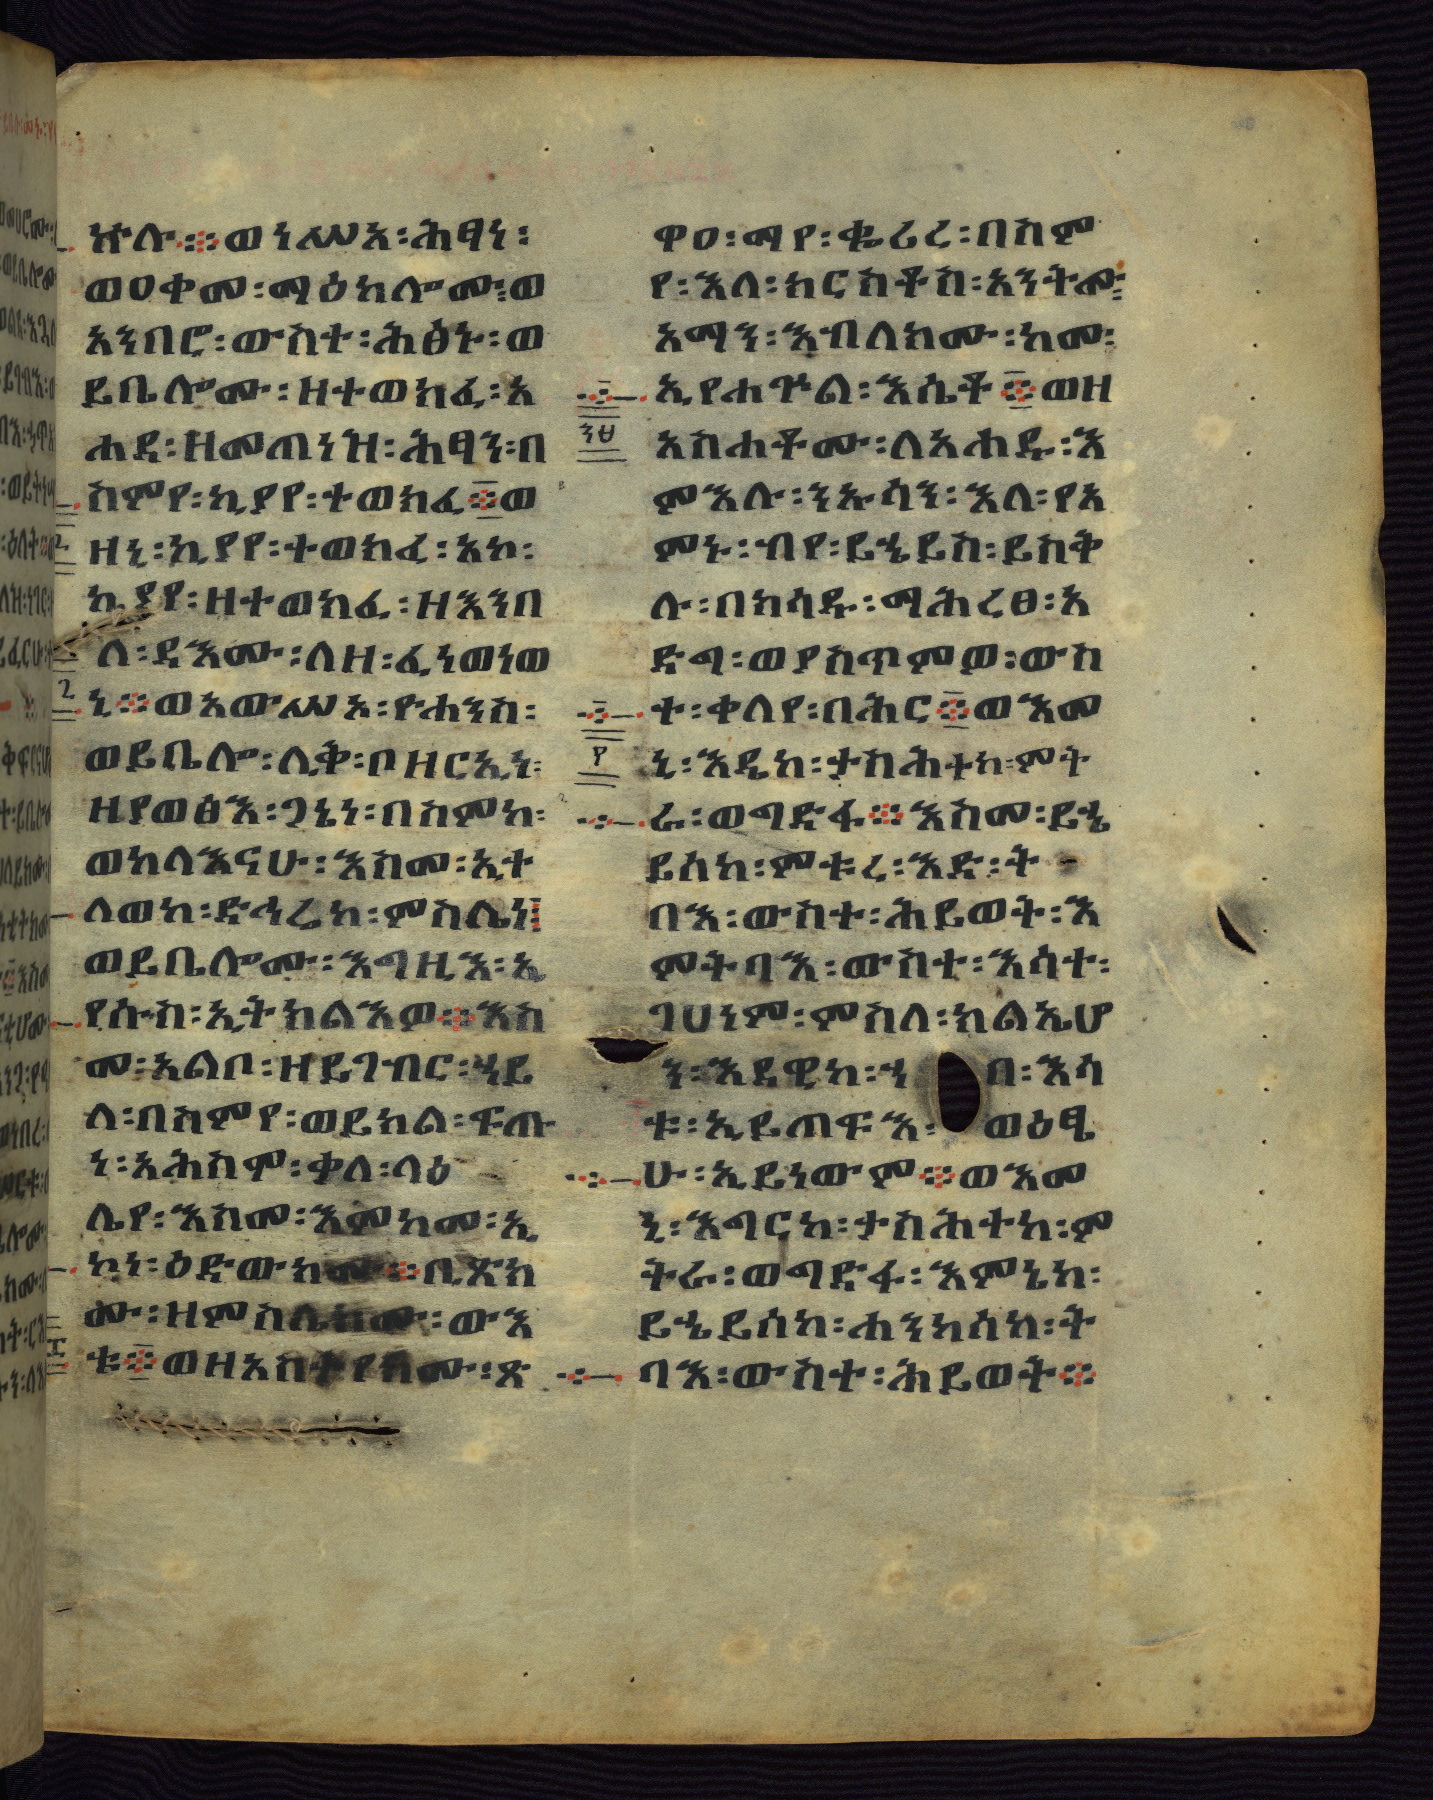 ኵሉ ። ወነሥአ ፡ ሕፃነ ፡
ወዐቀመ ፡ ማዕከሎሙ ፡ ወ
አንበሮ ፡ ውስተ ፡ ሕፅኑ ፡ ወ
ይቤሎሙ ፡ ዘተወክፈ ፡ አ
ሐደ ፡ ዘመጠነዝ ፡ ሕፃን ፡ በ
ስምየ ፡ ኪያየ ፡ ተወክፈ ። ወ
ዘኒ ፡ ኪያየ ፡ ተወክፈ ፡ አኮ ፡
ኪያየ ፡ ዘተወክፈ ፡ ዘእንበ
ለ ፡ ዳእሙ ፡ ለዘ ፡ ፈነወነወ
ኒ ። ወአውሥአ ፡ ዮሐንስ ፡
ወይቤሎ ፡ ሊቅ ፡ ቦ ዘርኢነ ፡
ዘያወፅእ ፡ ጋኔነ ፡ በስምከ ፡
ወከላእናሁ ፡ እስመ ፡ ኢተ
ለወከ ፡ ድኅሬከ ፡ ምስሌነ ።
ወይቤሎሙ ፡ እግዚእ ፡ ኢ
የሱስ ፡ ኢትክልእዎ ። እስ
መ ፡ አልቦ ፡ ዘይገብር ፡ ኃይ
ለ ፡ በስምየ ፡ ወይክል ፡ ፍጡ
ነ ፡ አሕስም ፡ ቃለ ፡ ላዕ
ሌየ ፡ እስመ ፡ እምከመ ፡ ኢ
ኮነ ፡ ዕድውክሙ ። ቢጽክ
ሙ ፡ ዘምስሌክሙ ፡ ውእ
ቱ ። ወዘአስተየክሙ ፡ ጽ
ዋዐ ፡ ማየ ፡ ቈሪረ ፡ በስም
የ ፡ እለ ፡ ክርስቶስ ፡ አንትሙ ፡
አማን ፡ እብለክሙ ፡ ከመ ፡
ኢየሐጕል ፡ እሴቶ ። ወዘ
፶፱
አስሐቶሙ ፡ ለአሐዱ ፡ እ
ምእሉ ፡ ንኡሳን ፡ እለ ፡ የአ
ምኑ ፡ ብየ ፡ ይኄይስ ፡ ይስቅ
ሉ ፡ በክሳዱ ፡ ማሕረፀ ፡ አ
ድግ ፡ ወያስጥምዎ ፡ ውስ
ተ ፡ ቀላየ ፡ በሕር ። ወእመ
፻
ኒ ፡ እዴከ ፡ ታስሕተከ ፡ ምት
ራ ፡ ወግድፋ ። እስመ ፡ ይኄ
ይሰከ ፡ ምቱረ ፡ እድ ፡ ት
ባእ ፡ ውስተ ፡ ሕይወት ፡ እ
ምትባእ ፡ ውስተ ፡ እሳተ ፡
ገሀነም ፡ ምስለ ፡ ክልኤሆ
ን ፡ እደዊከ ፡ ኀበ ፡ እሳ
ቱ ፡ ኢይጠፍእ ፡ ወዕፄ
ሁ ፡ ኢይነውም ። ወእመ
ኒ ፡ እግርከ ፡ ታስሕተከ ፡ ም
ትራ ፡ ወግድፋ ፡ እምኔከ ፡
ይኄይሰከ ፡ ሐንካሰከ ፡ ት
ባእ ፡ ውስተ ፡ ሕይወት ።